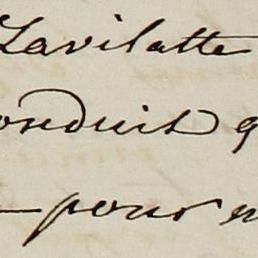 Lavilatte
onduit q
— pour n